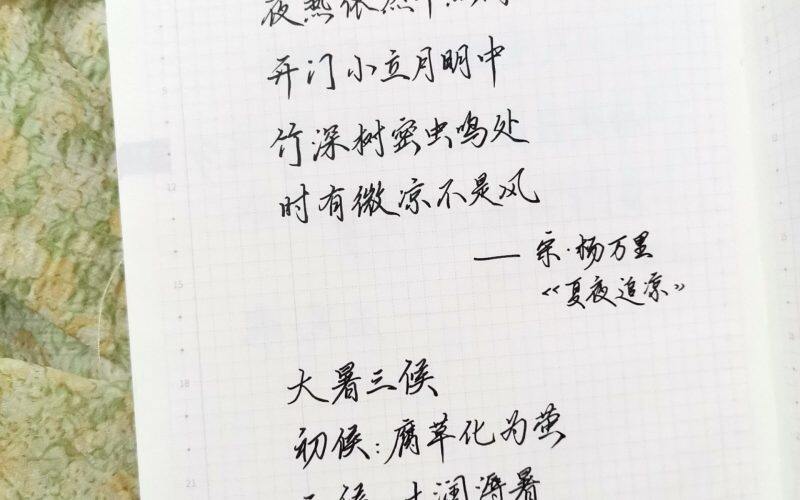 夜热依然午热同
开门小立月明中
竹深树密虫鸣处
时有微凉不是风
— 宋·杨万里
《夏夜追凉》
12
15
大暑三候
18
初候:腐草化为萤
21
二候:土润溽暑